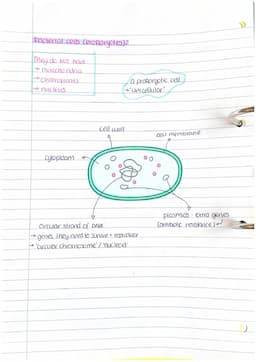 Bacterial cells (prokaryotes):
They do not have
→ mitochondria
→ chloroplasts
→ nucleus
a prokaryotic cell
→ 'unicellular'
cell wall
cell membrane
cytoplasm
plasmids - extra genes
(antibiotic resistance)
circular strand of DNA
→ genes they need to survive + reproduce
→ 'circular chromosome' / 'nucleoid'